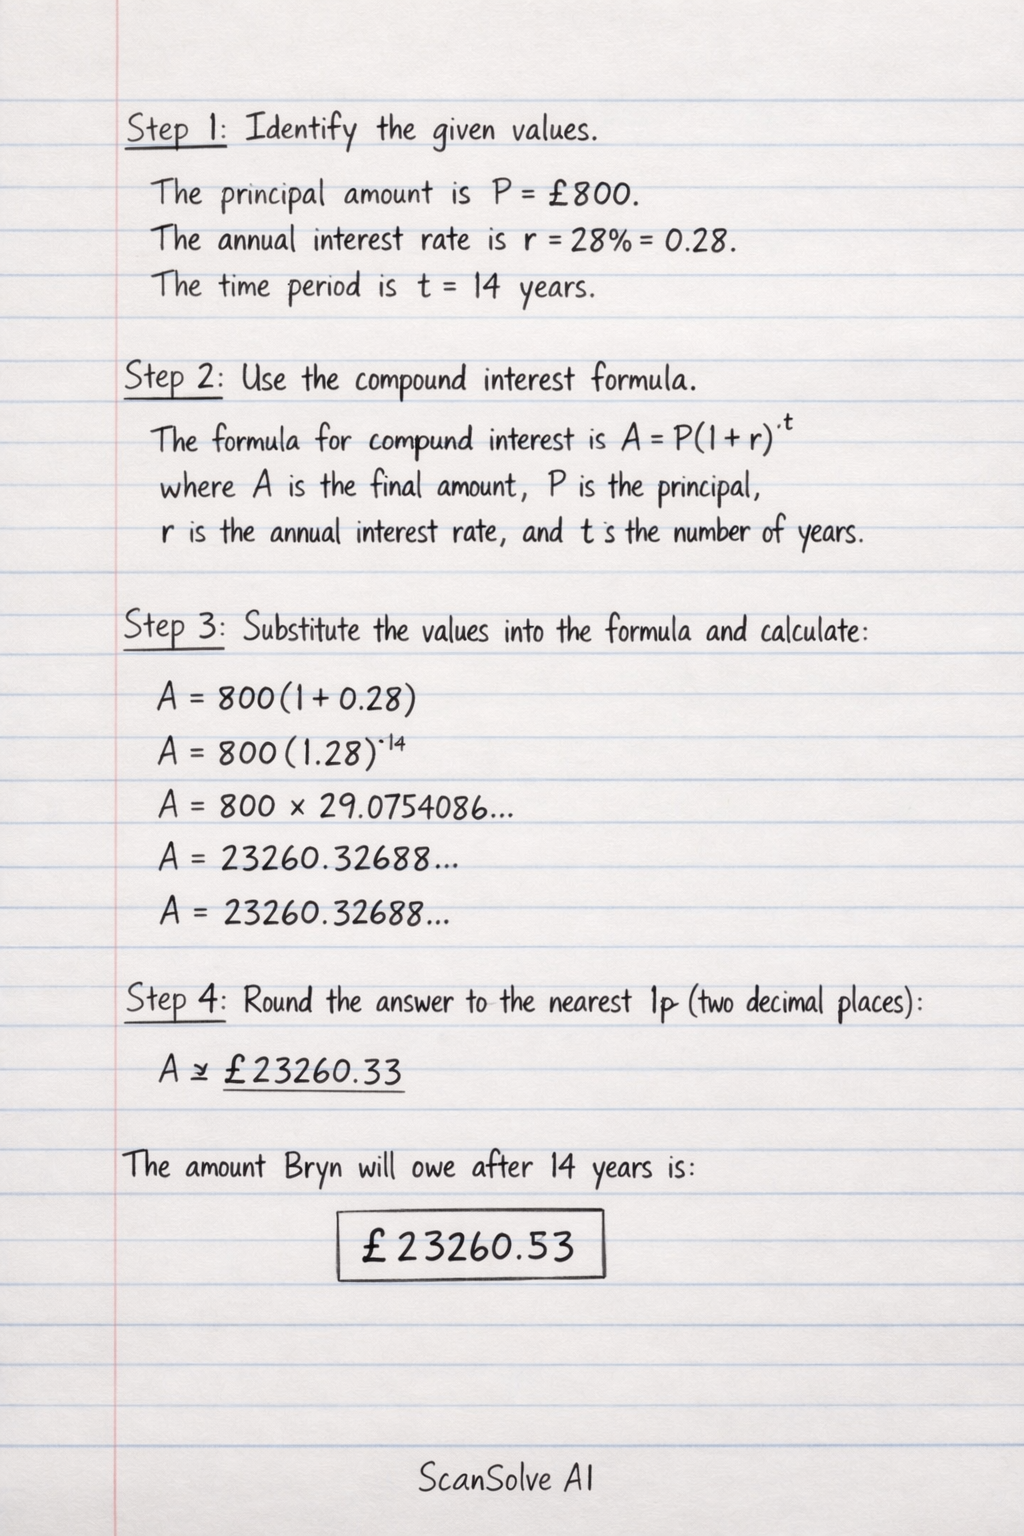 Step 1: Identify the given values.
The principal amount is P = £800.
The annual interest rate is r = 28% = 0.28.
The time period is t = 14 years.
Step 2: Use the compound interest formula.
The formula for compund interest is A = P(1 + r)^·t
where A is the final amount, P is the principal,
r is the annual interest rate, and t s the number of years.
Step 3: Substitute the values into the formula and calculate:
A = 800(1 + 0.28)
A = 800 (1.28)^·14
A = 800 × 29.0754086...
A = 23260.32688...
A = 23260.32688...
Step 4: Round the answer to the nearest 1p (two decimal places):
A ≃ £23260.33
The amount Bryn will owe after 14 years is:
£23260.53
ScanSolve AI